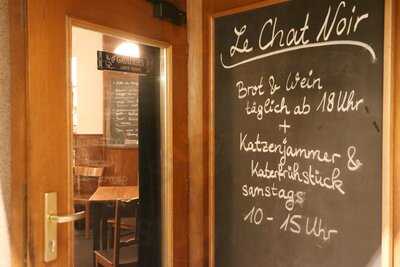 Le Chat Noir
Brot & Wein
täglich ab 18 Uhr
+
Katzenjammer &
Katerfrühstück
samstags
10 - 15 Uhr